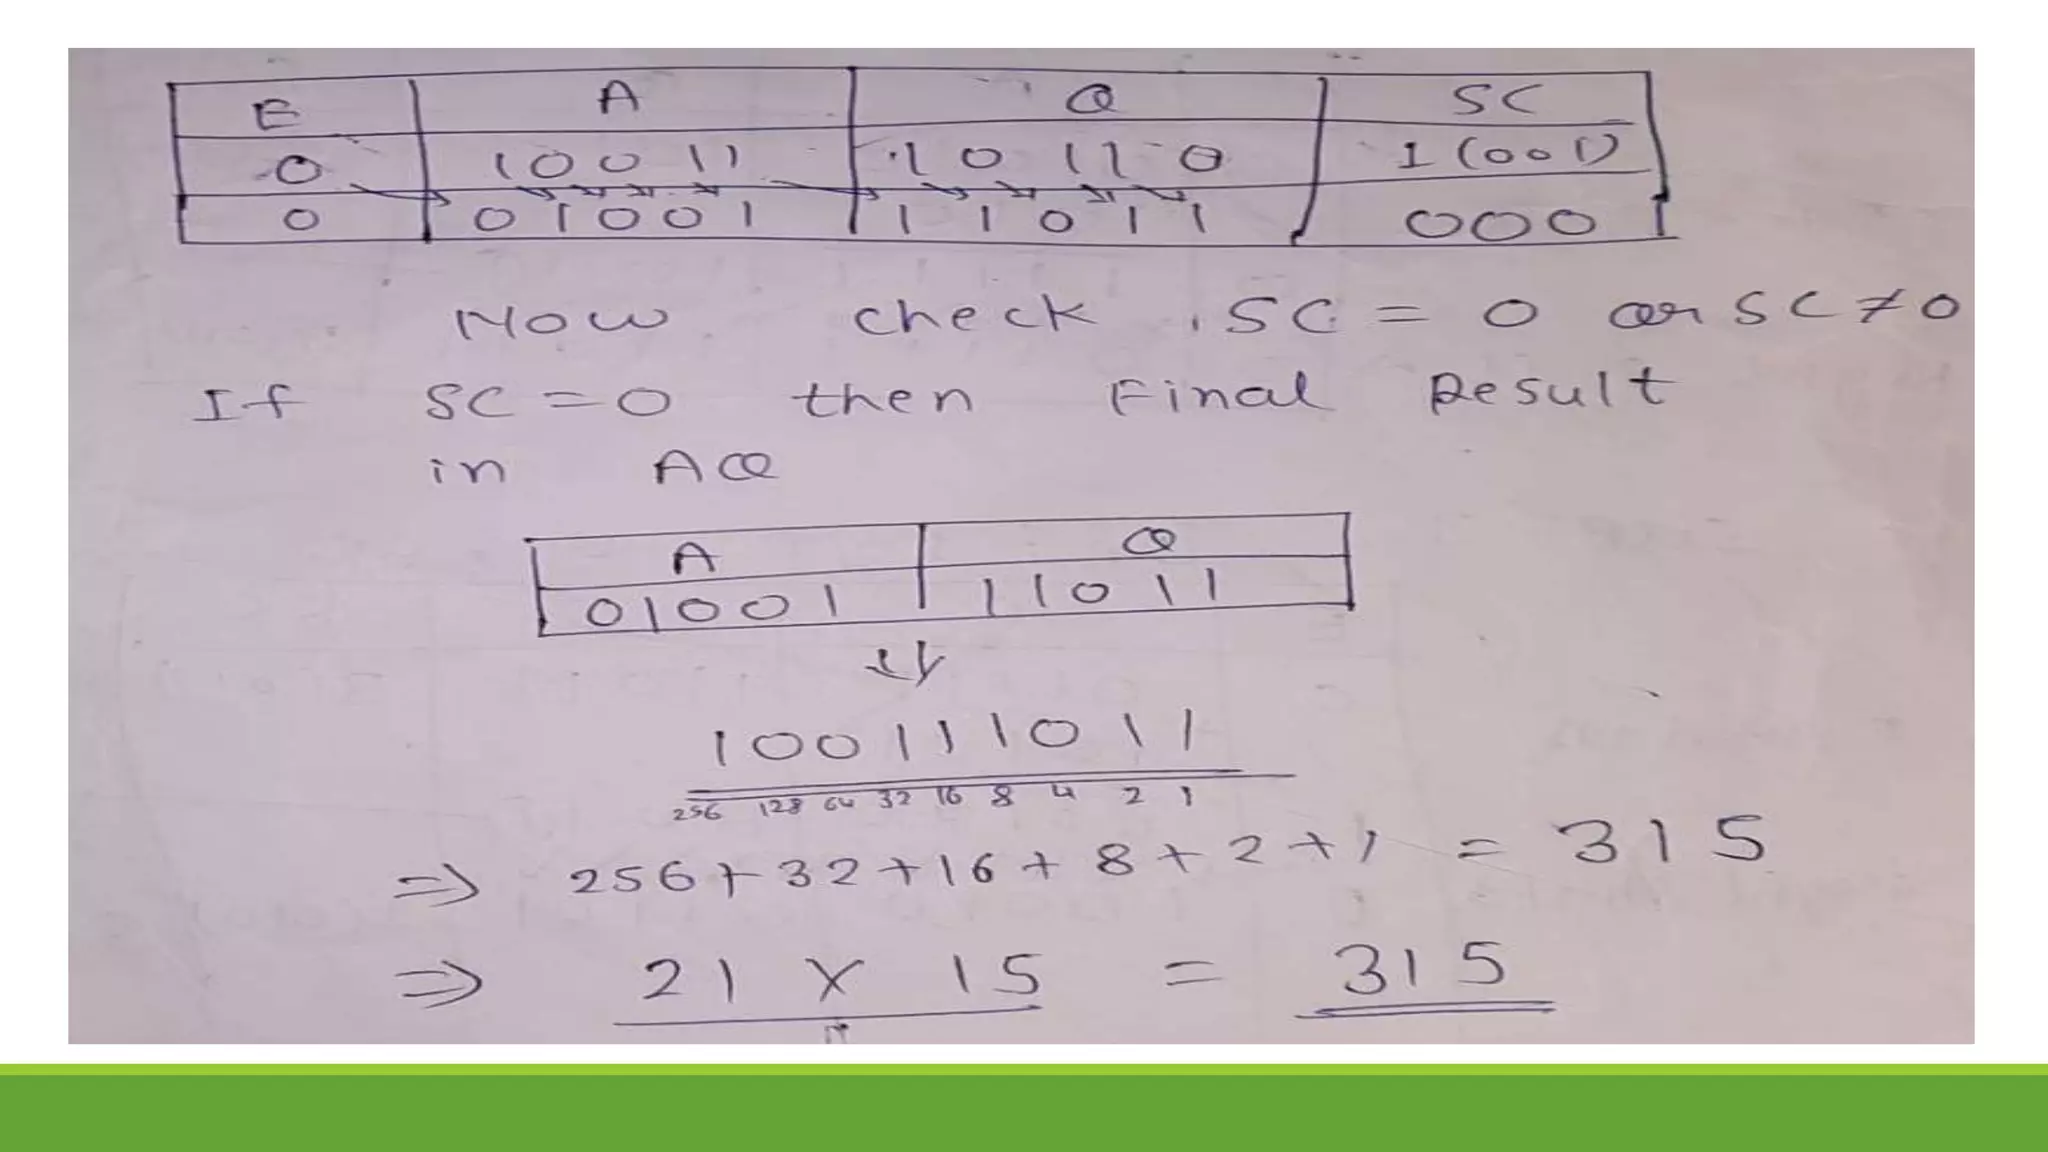 E A Q SC
0 10011 10110 1 (001)
0 01001 11011 000
Now check SC = 0 or SC ≠ 0
If SC = 0 then Final Result
in AQ
A Q
01001 11011
100111011
256 128 64 32 16 8 4 2 1
⇒ 256 + 32 + 16 + 8 + 2 + 1 = 315
⇒ 21 X 15 = 315